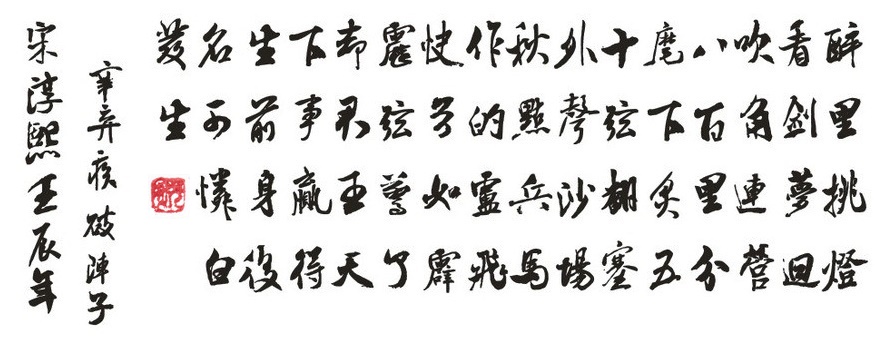 醉里挑燈
看劍夢迴
吹角連營
八百里分
麾下炙五
十弦翻塞
外聲沙場
秋點兵馬
作的盧飛
快弓如霹
靂弦驚了
却君王天
下事贏得
生前身後
名可憐白
發生
辛弃疾 破陣子
宋淳熙壬辰年